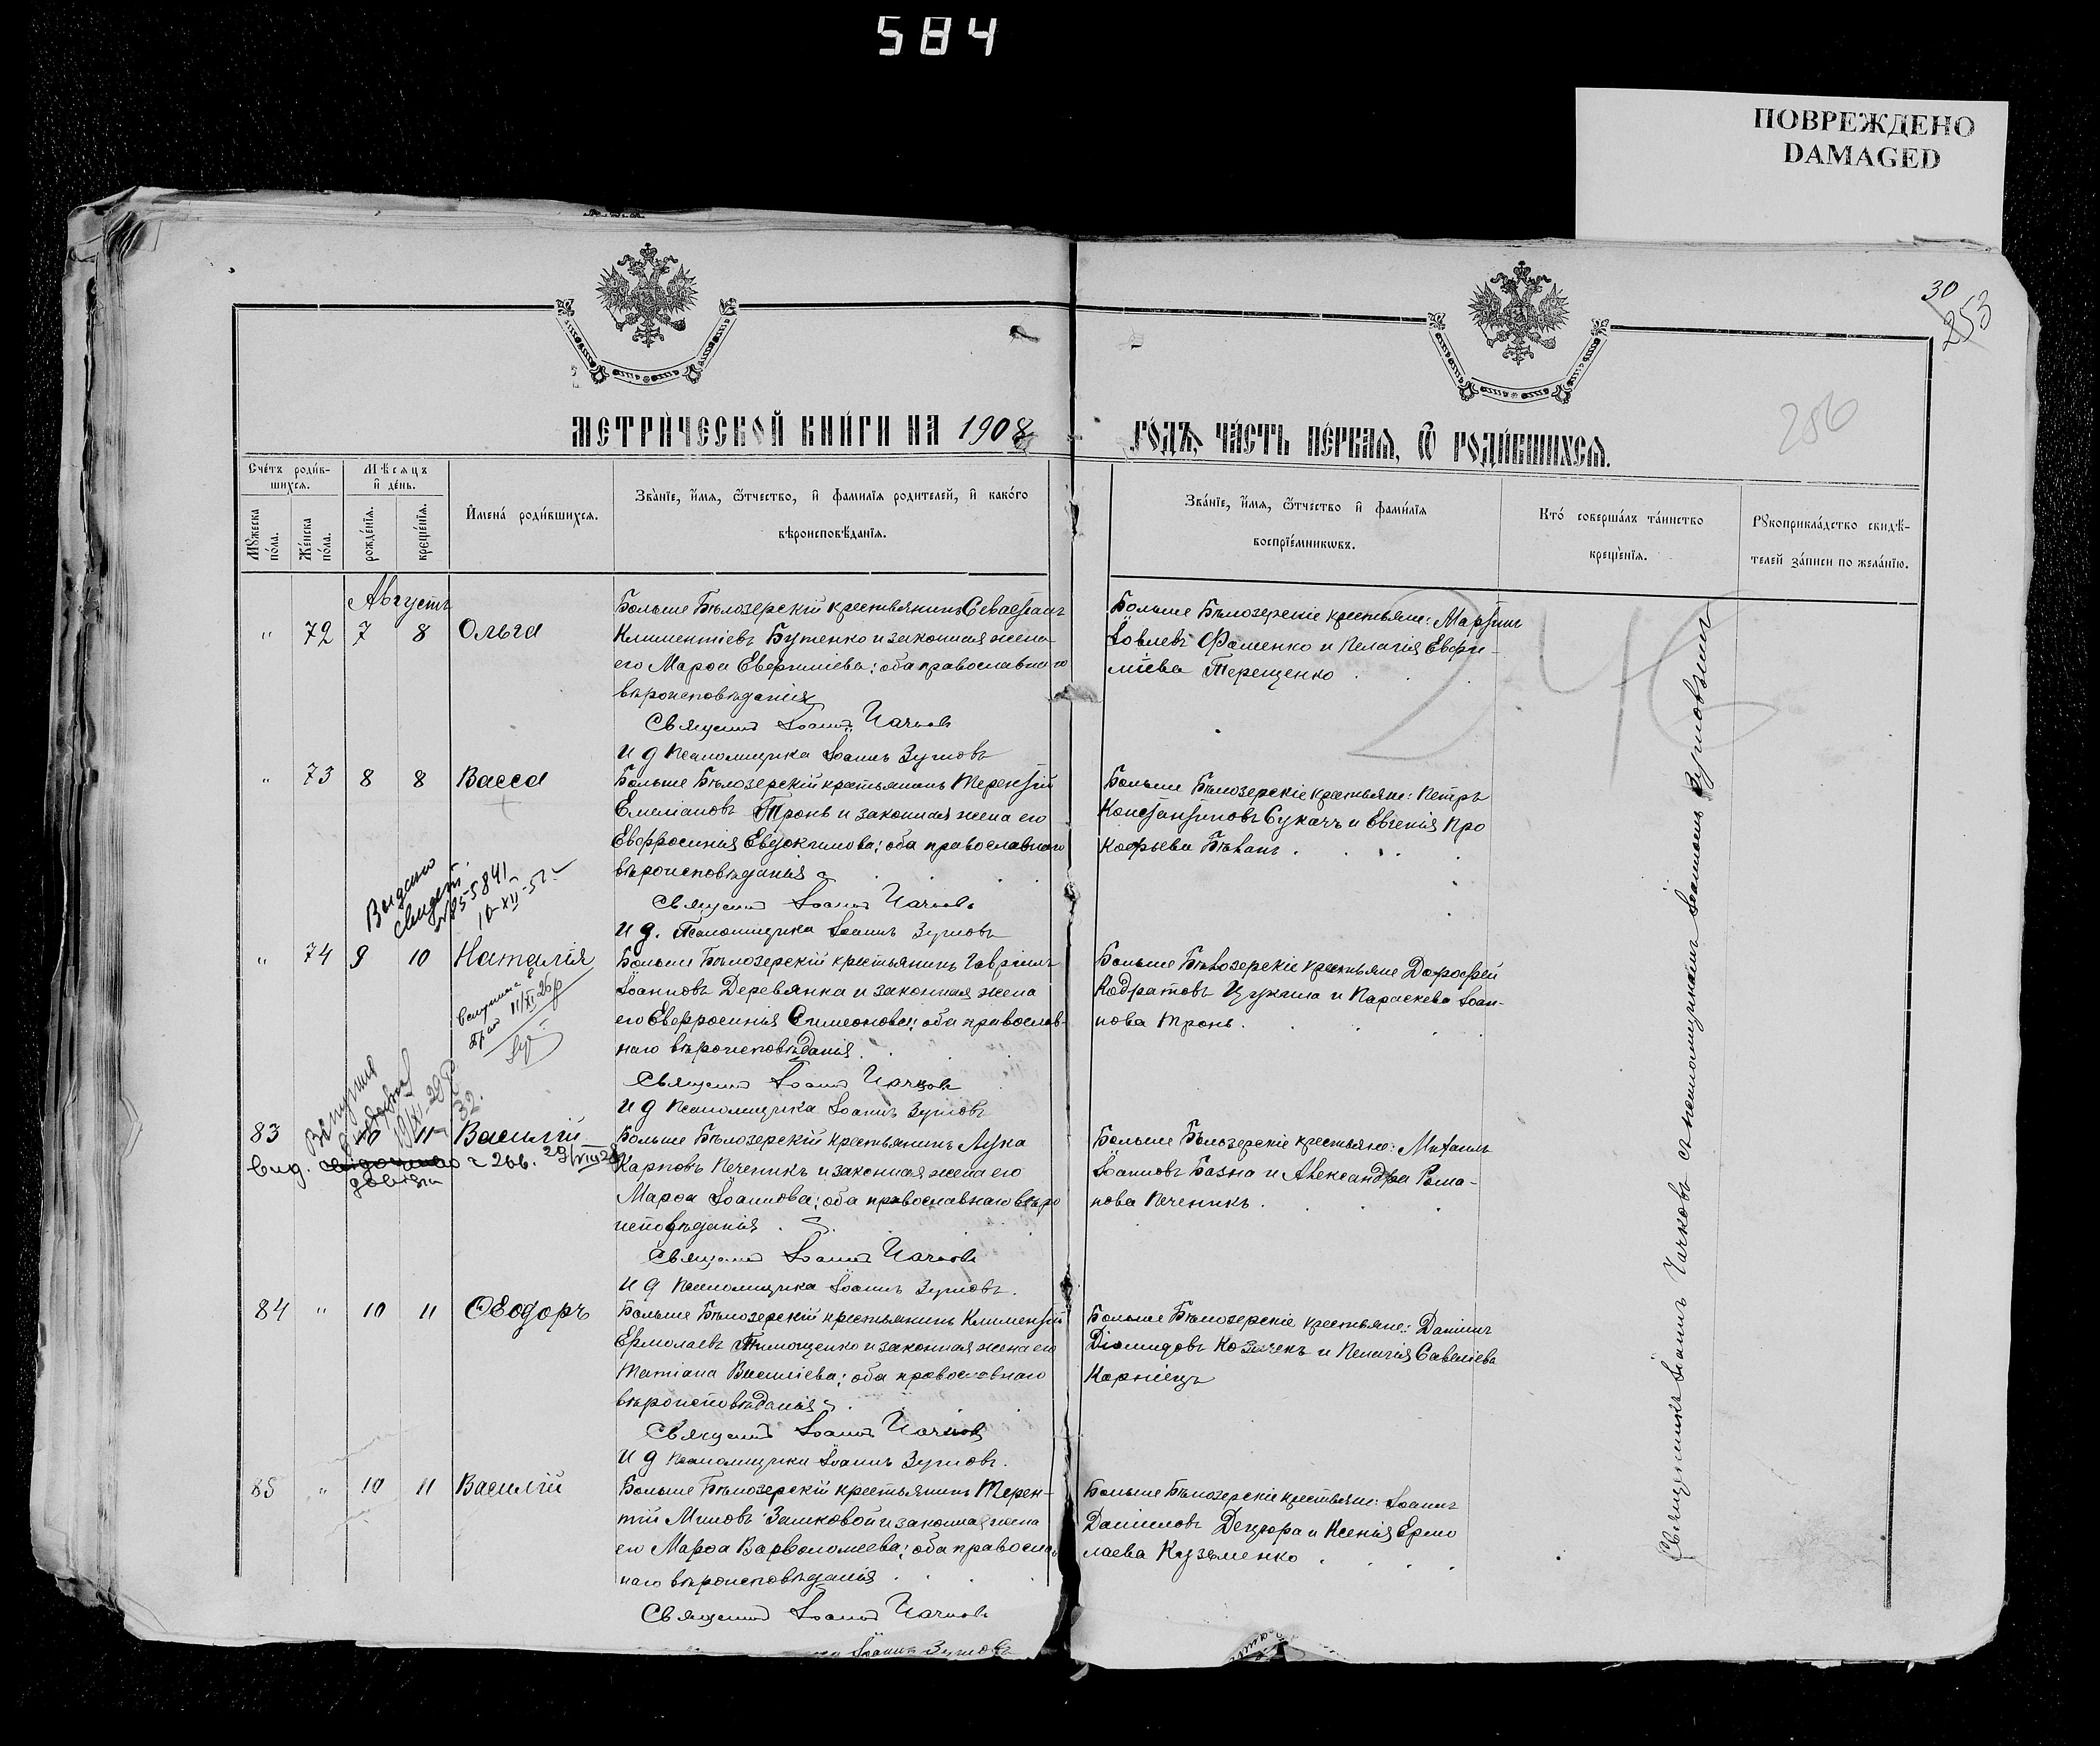 584
ПОВРЕЖДЕНО
DAMAGED
30
253
256
МЕТРИЧЕСКОЙ КНИГИ НА 1908
ГОДЪ, ЧАСТЬ ПЕРВАЯ, Ѿ РОДИВШИХСЯ.
Счетъ родив-
шихся.
Мѣсяцъ
и день.
Мужеска
пола.
Женска
пола.
рожденія.
крещенія.
Имена родившихся.
Званіе, имя, ѿтчество, и фамилія родителей, и какого
вѣроисповѣданія.
Званіе, имя, ѿтчество и фамилія
воспріемниковъ.
Кто совершалъ таинство
крещенія.
Рукоприкладство свидѣ-
телей записи по желанію.
Августъ
" 72 7 8 Ольга
Больше Бѣлозерскій крестьянинъ Севастіанъ
Климентіевъ Бутенко и законная жена
его Марѳа Евфиміева; оба православнаго
вѣроисповѣданія
Священ Іоаннъ Чачковъ
И д псаломщика Іоаннъ Зуповъ
Больше Бѣлозерскіе крестьяне: Мартинъ
Іовлевъ Фоменко и Пелагія Евфи-
міева Терещенко
" 73 8 8 Васса
Больше Бѣлозерскій крестьянинъ Терентій
Емеліановъ Тронь и законная жена его
Евфросинія Евдокимова; оба православнаго
вѣроисповѣданія
Священ Іоаннъ Чачковъ
И д. Псаломщика Іоаннъ Зуповъ
Больше Бѣлозерскіе крестьяне: Петръ
Константиновъ Сукачъ и Евгенія Про
кофьева Бѣланъ
Выдано
свидет.
№ 85-5841
10-XII-51
" 74 9 10 Наталія
Больше Бѣлозерскій крестьянинъ Гавріилъ
Іоанновъ Деревянка и законная жена
его Евфросинья Симеонова; оба православ-
наго вѣроисповѣданія
Священ Іоаннъ Чачковъ
И д псаломщика Іоаннъ Зуповъ
Больше Бѣлозерскіе крестьяне Дорофей
Кодратовъ и Параскева Іоан-
нова Тронь.
83 10 11 Василій
Больше Бѣлозерскій крестьянинъ Лука
Карповъ Печеникъ и законная жена его
Марѳа Іоаннова; оба православнаго вѣро
исповѣданія
Священ Іоаннъ Чачковъ
И д псаломщика Іоаннъ Зуповъ.
Больше Бѣлозерскіе крестьяне: Михаилъ
Іоанновъ Базна и Александра Рома-
нова Печеникъ.
84 " 10 11 Ѳеодоръ
Больше Бѣлозерскій крестьянинъ Климентій
Ермолаевъ Тимощенко и законная жена его
Татіана Василіева; оба православнаго
вѣроисповѣданія
Священ Іоаннъ Чачковъ
И д псаломщика Іоаннъ Зуповъ.
Больше Бѣлозерскіе крестьяне: Даніилъ
Діомидовъ Козаченъ и Пелагія Савеліева
Карпіецъ
85 " 10 11 Василій
Больше Бѣлозерскій крестьянинъ Терен-
тій Миновъ Замковой и законная жена
его Марѳа Варѳоломеева; оба православ
наго вѣроисповѣданія
Священ Іоаннъ Чачковъ
Іоаннъ Зуповъ
Больше Бѣлозерскіе крестьяне: Іоаннъ
Даніиловъ Децюра и Ксенія Ермо
лаева Кузьменко
Священникъ Іоаннъ Чачковъ съ псаломщикомъ Іоанномъ Зуповымъ